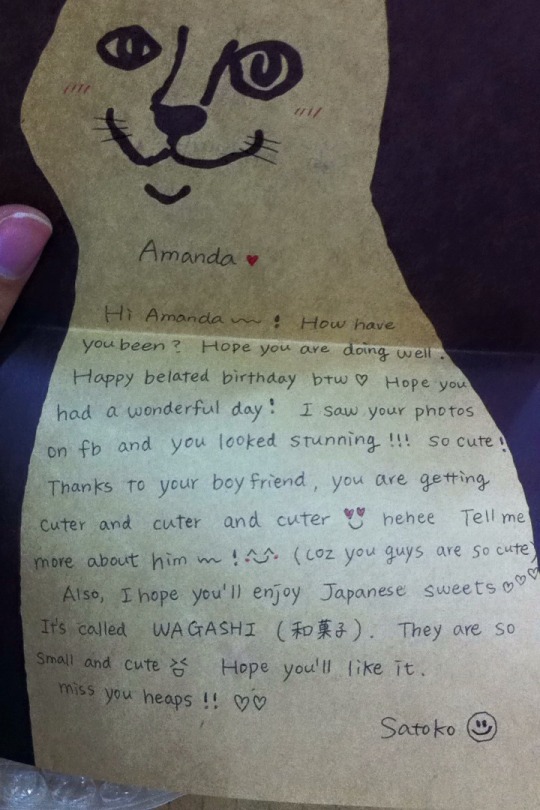 Amanda ♥
Hi Amanda〜! How have
you been? Hope you are doing well.
Happy belated birthday btw ♡ Hope you
had a wonderful day! I saw your photos
on fb and you looked stunning!!! so cute!
Thanks to your boyfriend, you are getting
cuter and cuter and cuter hehee Tell me
more about him 〜! ^◡^ (coz you guys are so cute)
Also, I hope you'll enjoy Japanese sweets ♡♡♡
It's called WAGASHI (和菓子). They are so
small and cute Hope you'll like it.
miss you heaps!! ♡♡
Satoko ☺